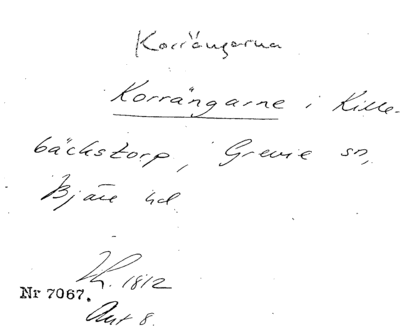 Korrängarna
Korrängarne i Kille-
bäckstorp, Grevie sn,
Bjäre hd
Lh. 1812
Nr 7067.
Akt 8.